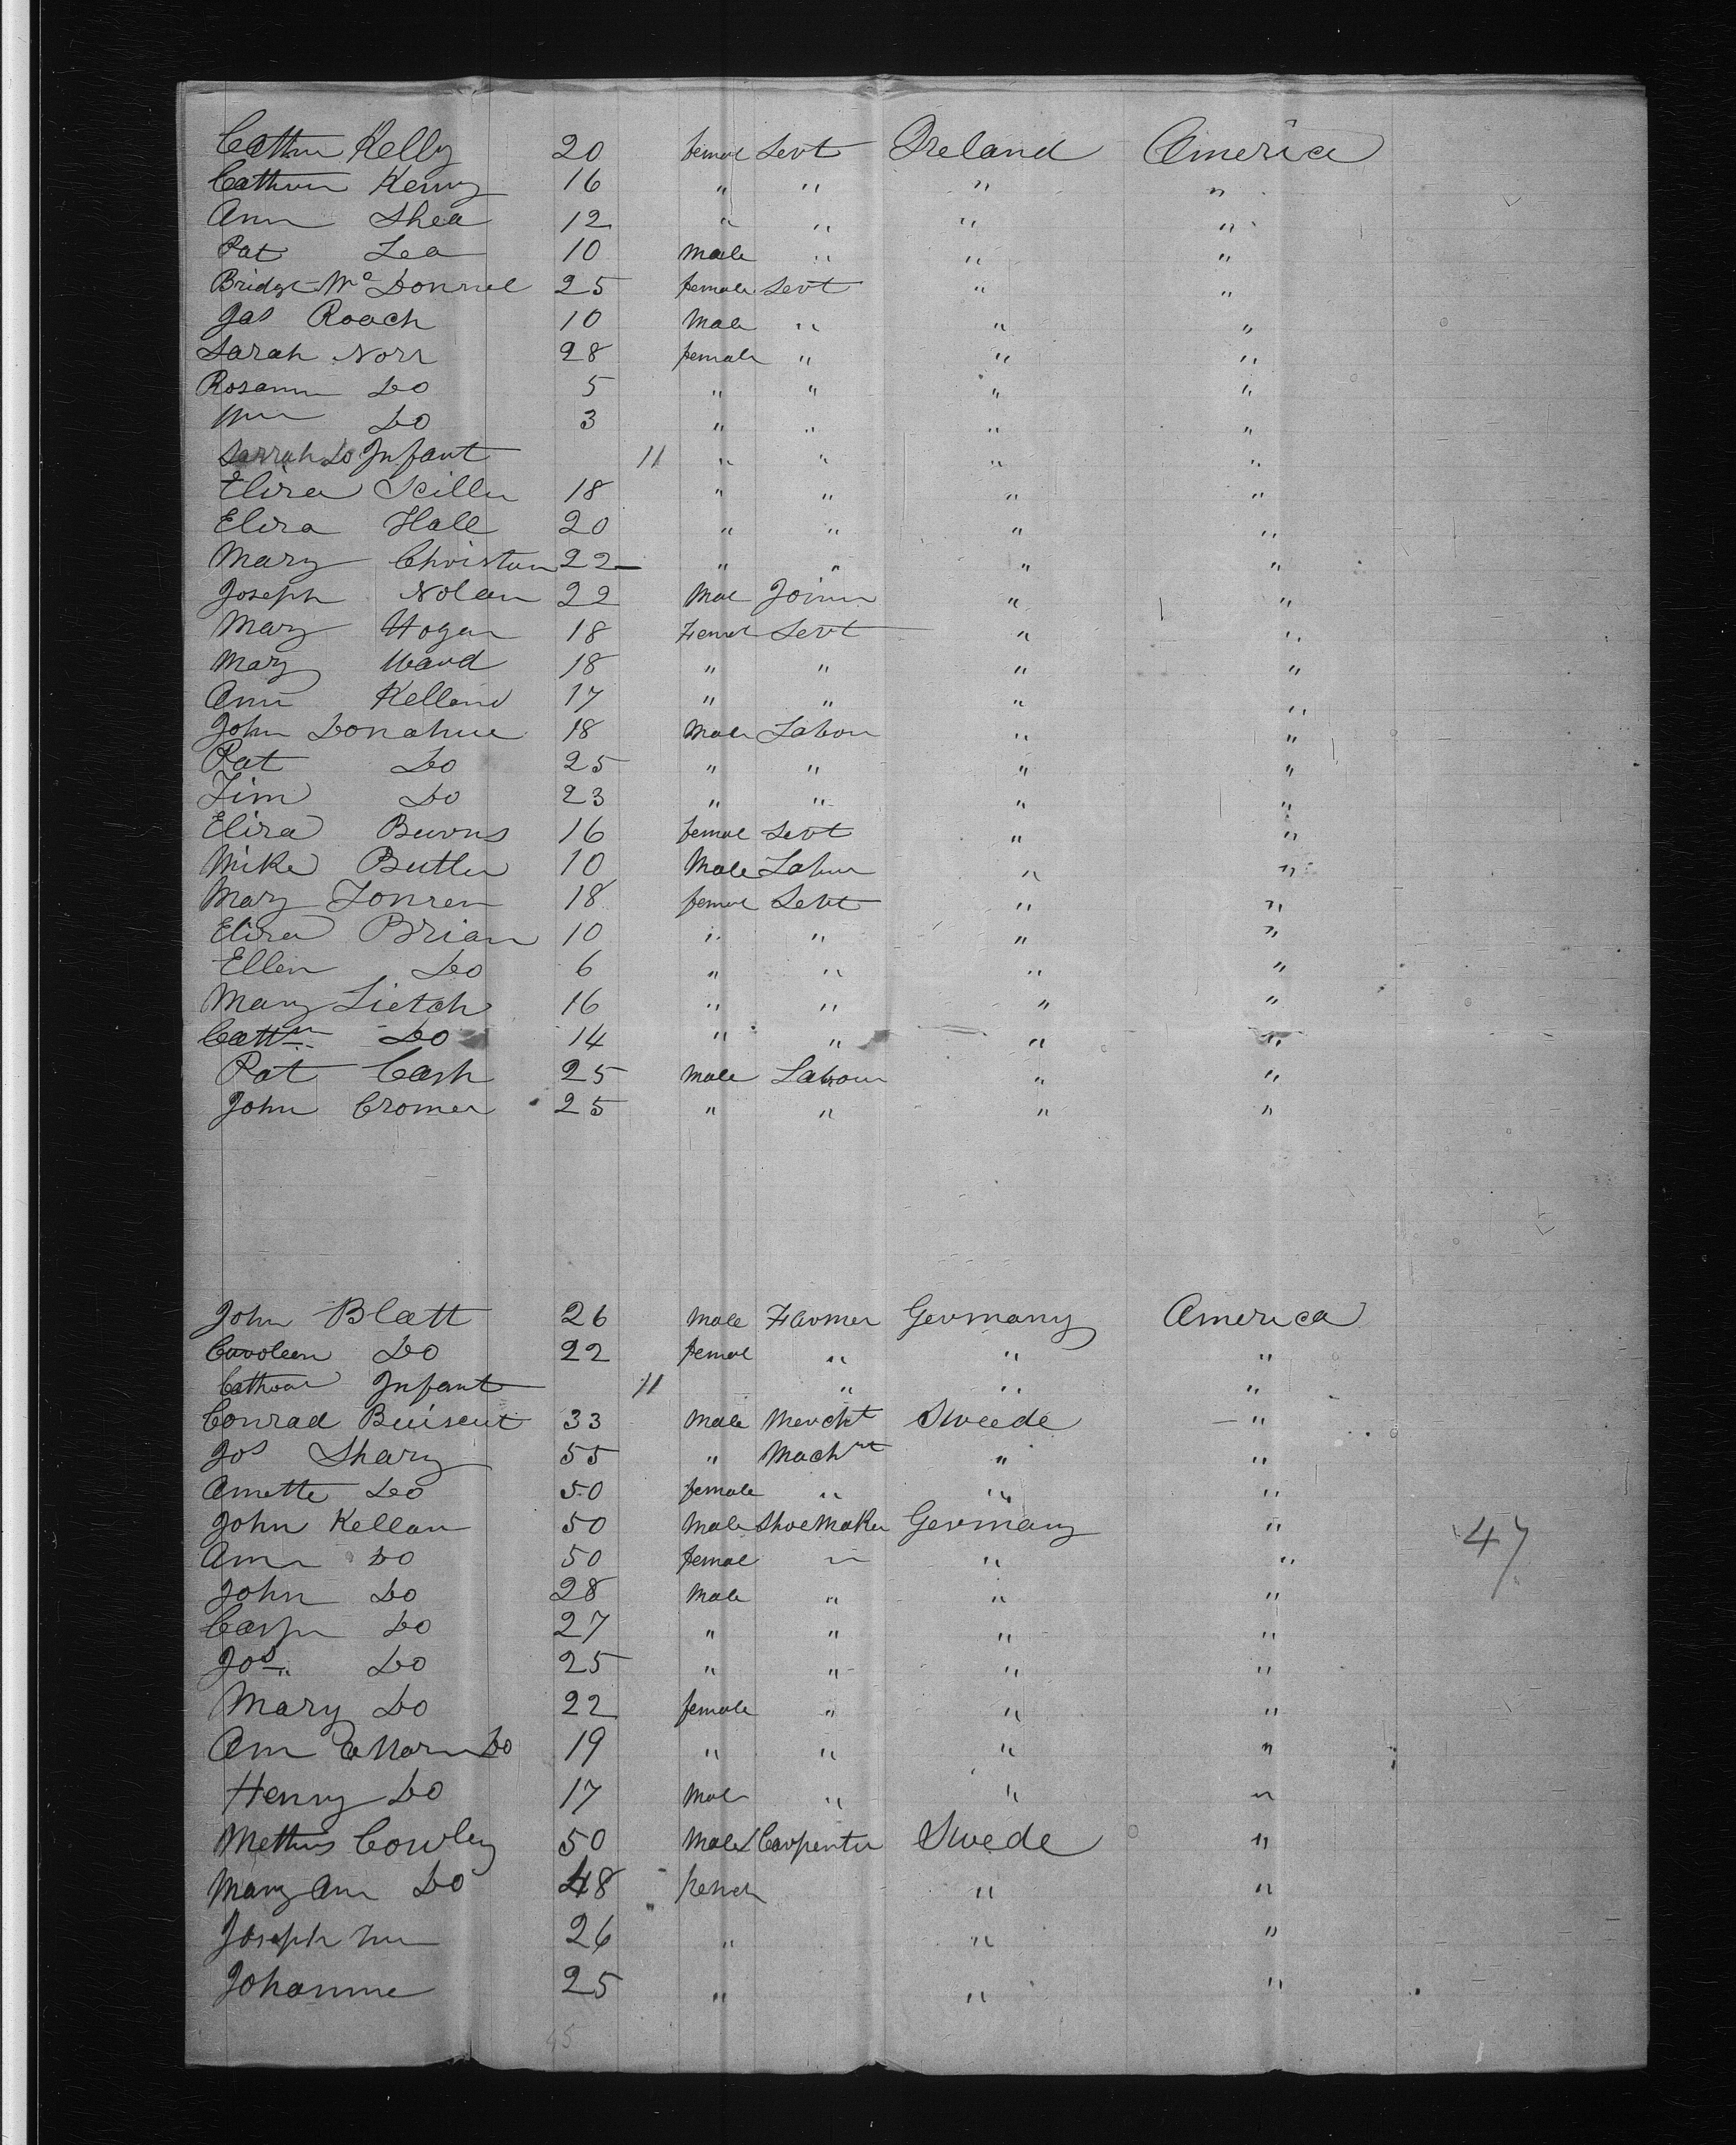 Cathn Kelly 20 femal Sevt Ireland America
Cathrin Kenny 16 " " " "
Ann Shea 12 " " " "
Pat Lea 10 Male " " "
Bridgt Mc Donnel 25 female Sevt " "
Jas Roach 10 Male " " "
Sarah Norr 28 female " " "
Rosann Do 5 " " " "
Wm Do 3 " " " "
Sarrah Do Infant 11 " " " "
Eliza Scilln 18 " " " "
Eliza Hall 20 " " " "
Mary Christan 22 " " " "
Joseph Nolan 22 Mal Joinn " "
Mary Hogan 18 Femal Sevt " "
Mary Ward 18 " " " "
Ann Kelland 17 " " " "
John Donahue 18 Male Labou " "
Pat Do 25 " " " "
Tim Do 23 " " " "
Eliza Buvns 16 femal Sevt " "
Mike Butler 10 Male Labur " "
Mary Tonren 18 femal Sevt " "
Eliza Brian 10 " " " "
Ellen Do 6 " " " "
Mary Lietch 16 " " " "
Cathn Do 14 " " " "
Pat Cash 25 Male Labour " "
John Cromer 25 " " " "
John Blatt 26 Male Farmer Germany America
Caroleen Do 22 femal " " "
Infant 11 " " "
Conrad 33 Male Mercht Sweede "
Jos Shary 55 " Machst " "
Annette Do 50 female " " "
John Kellan 50 Male Shoemaker Germany "
Ann Do 50 femal " " "
47
John Do 28 Male " " "
Caspr Do 27 " " " "
Jos Do 25 " " " "
Mary Do 22 female " " "
Ann Do 19 " " " "
Henry Do 17 Mal " " "
Methus Cowley 50 Male Carpenter Swede "
Mary Ann Do 48 " "
Joseph 26 " " "
Johanne 25 " " "
45